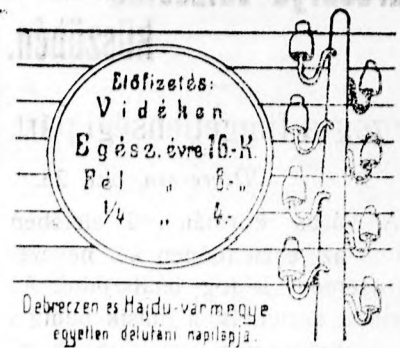 Előfizetés:
Vidéken
Egész évre 16.-K.
Fél „ 8.- „
1/4 „ 4.- „
Debreczen es Hajdu-vármegye
egyetlen délutáni napilapja.